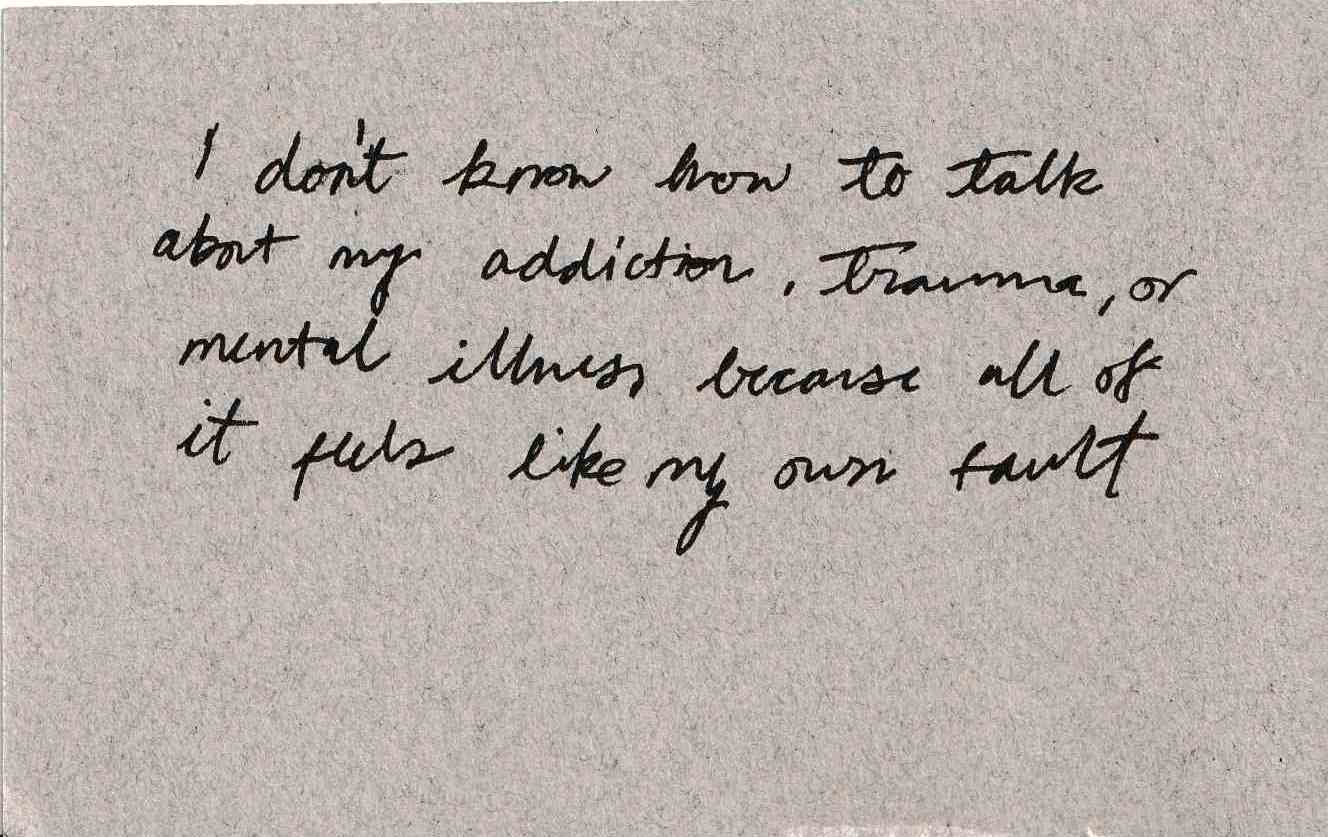 I don't know how to talk
about my addiction, trauma, or
mental illness because all of
it feels like my own fault